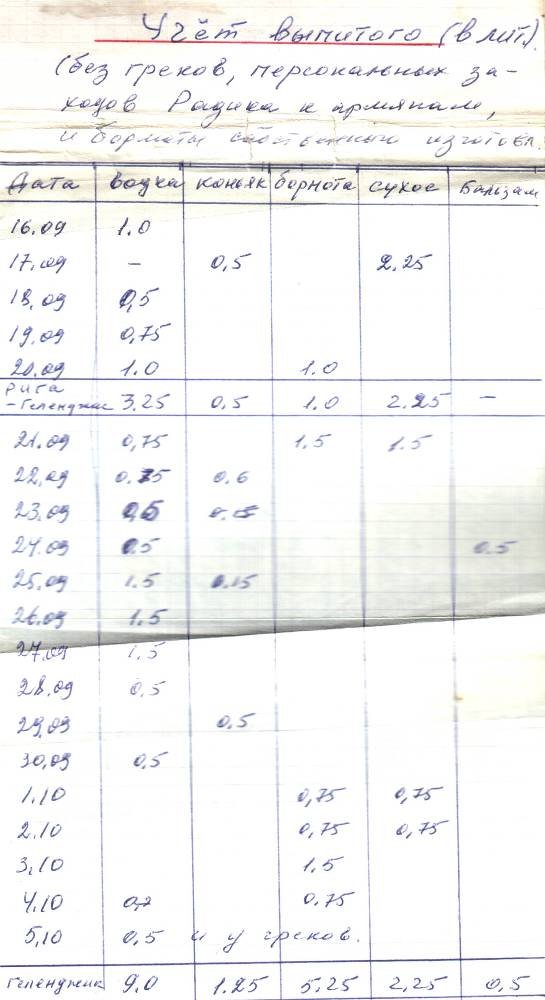 Учёт выпитого (в лит.)
(без греков, персональных за-
ходов Радика к армянам,
и бормоты собственного изготовл.
Дата водка коньяк бормота сухое бальзам
16.09 1.0
17.09 – 0,5 2.25
18.09 0,5
19.09 0,75
20.09 1.0 1.0
Рига
-Геленджик 3.25 0,5 1.0 2.25 –
21.09 0,75 1.5 1.5
22.09 0.75 0.6
23.09 0,5
24.09 0.5 0.5
25.09 1.5 0.15
26.09 1.5
27.09 1.5
28.09 0,5
29.09 0,5
30,09 0,5
1.10 0,75 0,75
2.10 0,75 0,75
3,10 1.5
4.10 0,2 0.75
5,10 0,5 и у греков.
Геленджик 9.0 1.25 5.25 2,25 0,5